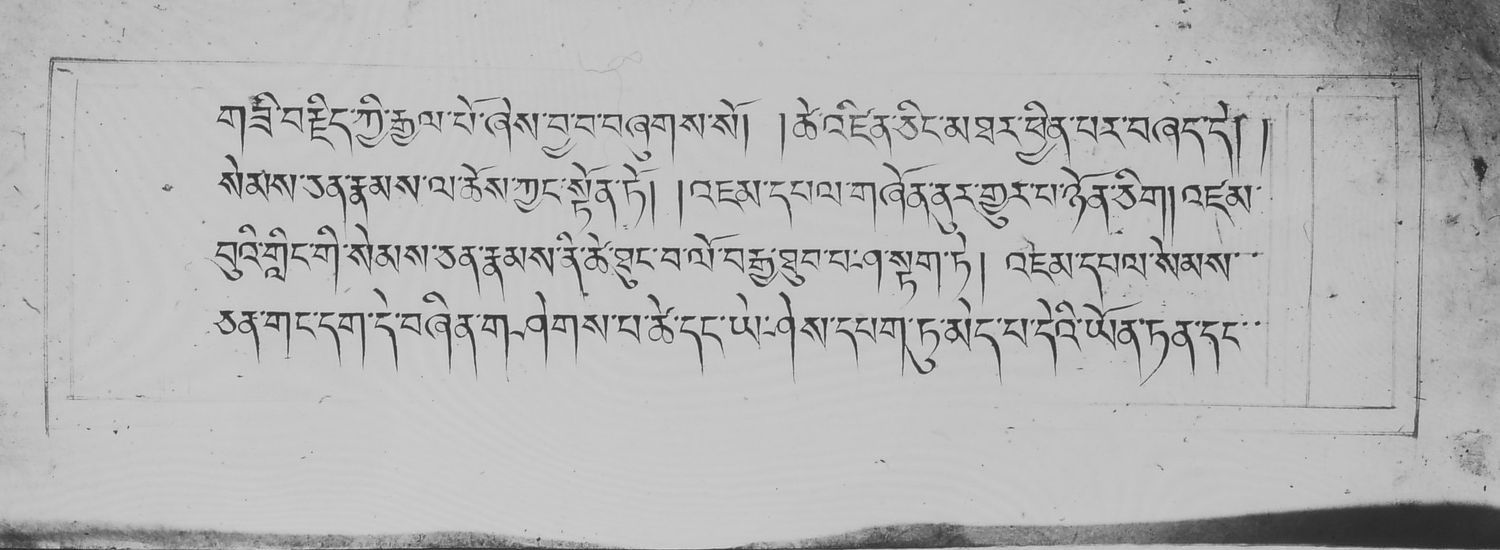 གཟི་བརྗིད་ཀྱི་རྒྱལ་པོ་ཞེས་བྱ་བ་བཞུགས་སོ། །ཚེ་འཛིན་ཅིང་མཐར་ཕྱིན་པར་བཞད་དེ། །
སེམས་ཅན་རྣམས་ལ་ཆོས་ཀྱང་སྟོན་ཏོ། །འཇམ་དཔལ་གཞོན་ནུར་གྱུར་པ་ཉོན་ཅིག། འཛམ་
བུའི་གླིང་གི་སེམས་ཅན་རྣམས་ནི་ཚེ་ཐུང་བ་ལོ་བརྒྱ་ཐུབ་པ་ཤ་སྟག་ཏེ། འཇམ་དཔལ་སེམས་
ཅན་གང་དག་དེ་བཞིན་གཤེགས་པ་ཚེ་དང་ཡེ་ཤེས་དཔག་ཏུ་མེད་པ་དེའི་ཡོན་ཏན་དང་